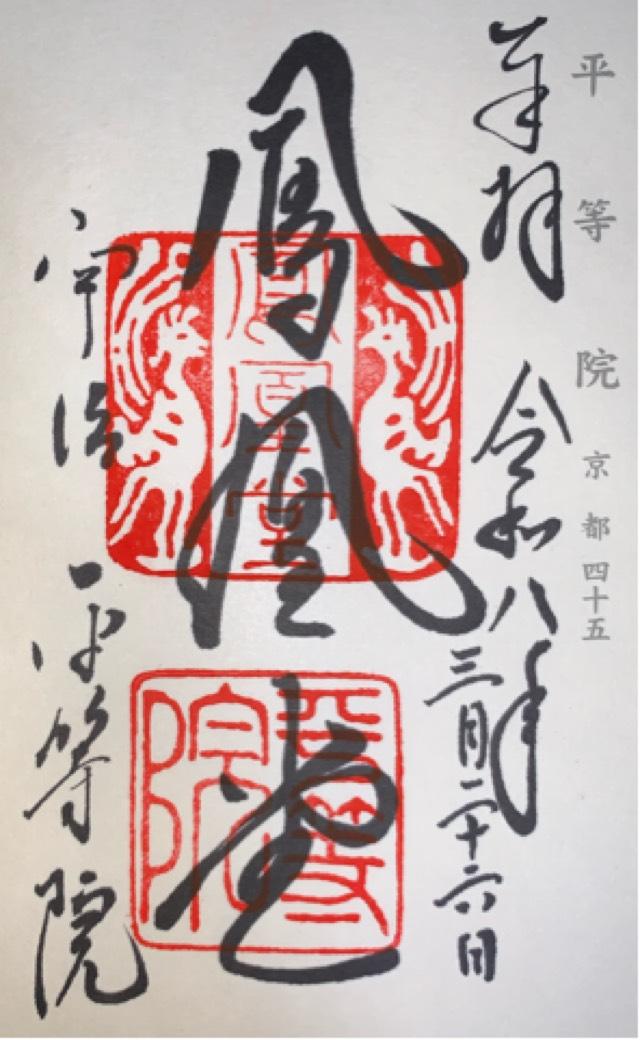 平等院 京都四十五
奉拝 令和八年
三月二十六日
鳳凰堂
鳳凰堂
平等院
宇治 平等院